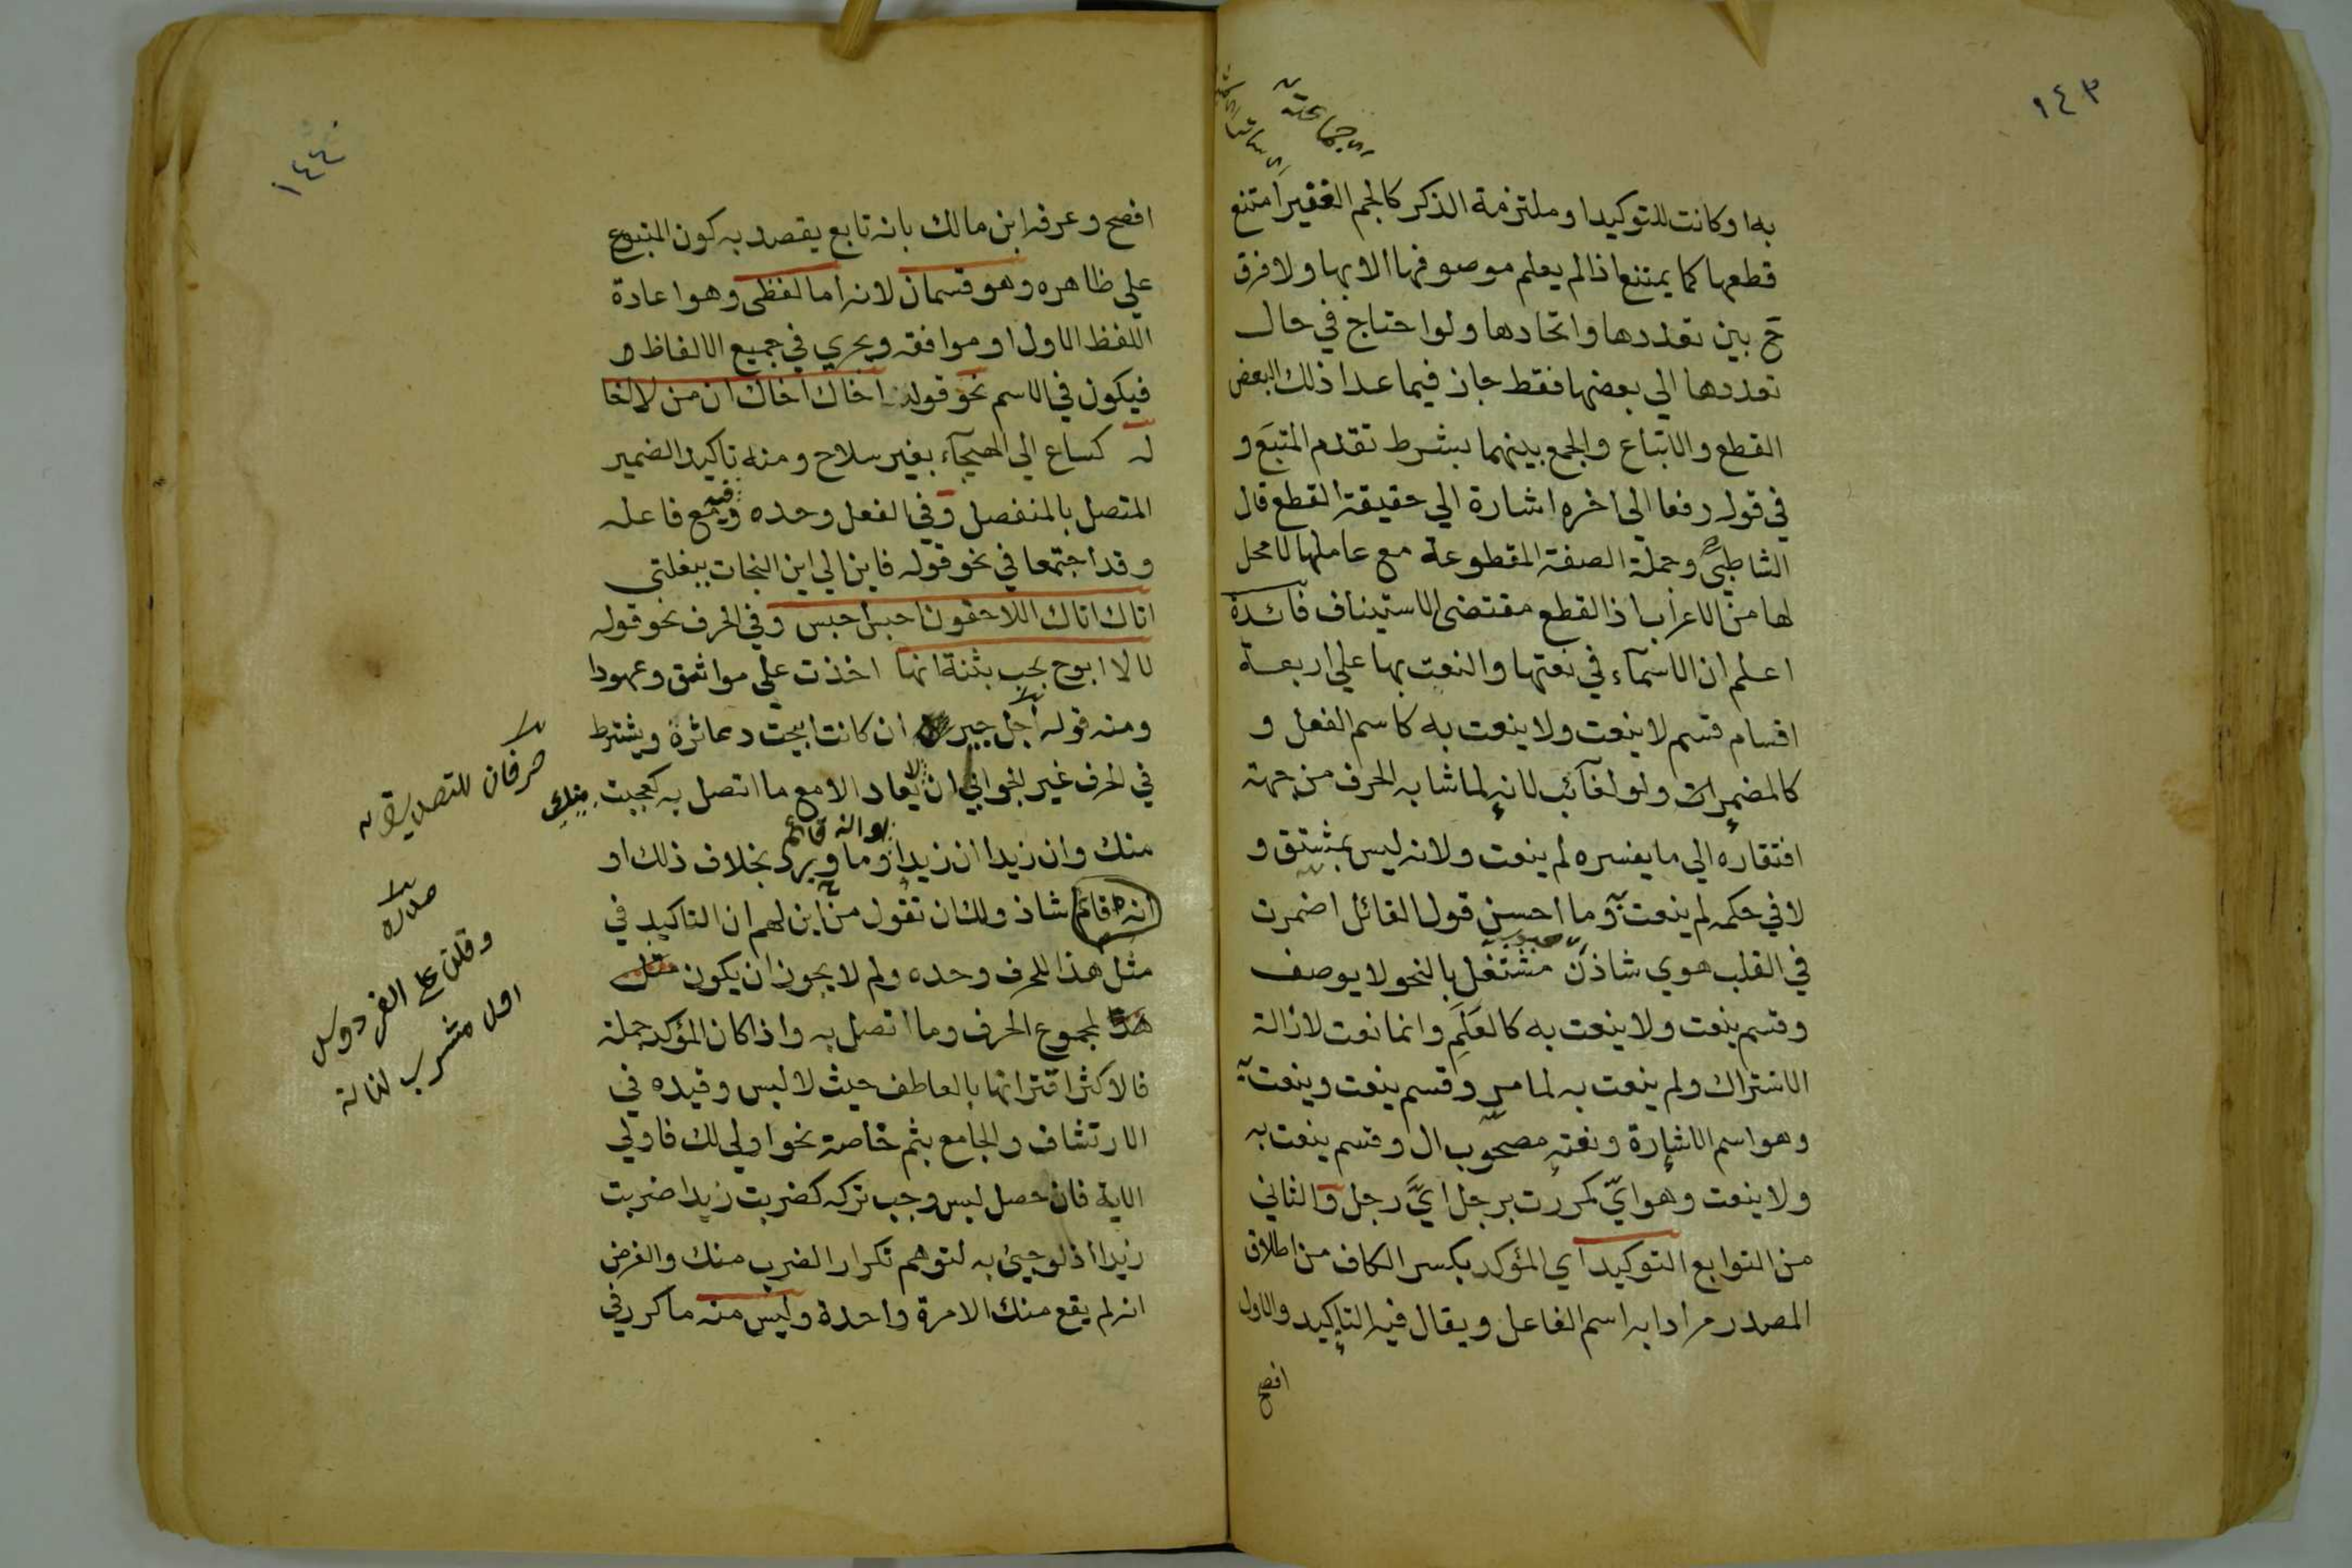 ١٤٣
به او كانت للتوكيد او ملتزمة الذكر كالجم الغفير امتنع
قطعها كما يمتنع اذا لم يعلم موصوفها الا بها ولا فرق
ح بين تعددها واتحادها ولو احتاج في حال
تعددها الي بعضها فقط جاز فيما عدا ذلك البعض
القطع والاتباع والجمع بينهما بشرط تقدم المتبع و
في قوله رفعا الي اخره اشارة الي حقيقة القطع قال
الشاطبي وجملة الصفة المقطوعة مع عاملها لا محل
لها من الاعراب اذ القطع مقتضى الاستيناف فائدة
اعلم ان الاسماء في نعتها والنعت بها علي اربعة
اقسام قسم لا ينعت ولا ينعت به كاسم الفعل و
كالمضمرات ولو لغائب لانه لما شابه الحرف من جهة
افتقاره الي ما يفسره لم ينعت ولانه ليس بمشتق و
لا في حكمه لم ينعت به وما احسن قول القائل اضمرت
في القلب هوي شاذن مشتغل بالنحو لا يوصف
وقسم ينعت ولا ينعت به كالعَلَم وانما نعت لازالة
الاشتراك ولم ينعت به لما مر وقسم ينعت وينعت به
وهو اسم الاشارة ونعته مصحوب ال وقسم ينعت به
ولا ينعت وهو ايّ كمررت برجل ايّ رجل والثاني
من التوابع التوكيد اي المؤكد بكسر الكاف من اطلاق
المصدر مرادا به اسم الفاعل ويقال فيه التاكيد والاول
افصح
١٤٤
افصح وعرفه ابن مالك بانه تابع يقصد به كون المتبوع
علي ظاهره وهو قسمان لانه اما لفظي وهو اعادة
اللفظ الاول او موافقه ويجري في جميع الالفاظ و
فيكون في الاسم نحو قوله اخاك اخاك ان من لا اخا
له كساع الي الهيجآء بغير سلاح ومنه تاكيد الضمير
المتصل بالمنفصل وفي الفعل وحده وفيه مع فاعله
وقد اجتمعا في نحو قوله فاين الي اين النجات ببغلتي
اتاك اتاك اللاحقون احبس احبس وفي الحرف نحو قوله
لا لا ابوح بحب بثنة انها اخذت علي مواثق وعهودا
ومنه قوله اجل جير ان كانت ابيحت دعاثره ويشترط
في الحرف غير الجوابي ان لا يعاد الا مع ما اتصل به كعجبت منك
منك وان زيدا ان زيدا وما ورد بخلاف ذلك او
انه قائم شاذ ولك ان تقول من اين لهم ان التاكيد في
مثل هذا للحرف وحده ولم لا يجوز ان يكون
لمجموع الحرف وما اتصل به واذا كان المؤكد جملة
فالاكثر اقترانها بالعاطف حيث لا لبس وقيده في
الارتشاف والجامع بثم خاصة نحو اولي لك فاولي
الاية فان حصل لبس وجب تركه كضربت زيدا ضربت
زيدا اذ لو جيئ به لتوهم تكرار الضرب منك والغرض
انه لم يقع منك الا مرة واحدة وليس منه ما كرر في
انه قائم
حرفان للتصديق
صدره
وقلن علي الفردوس
اول مشرب